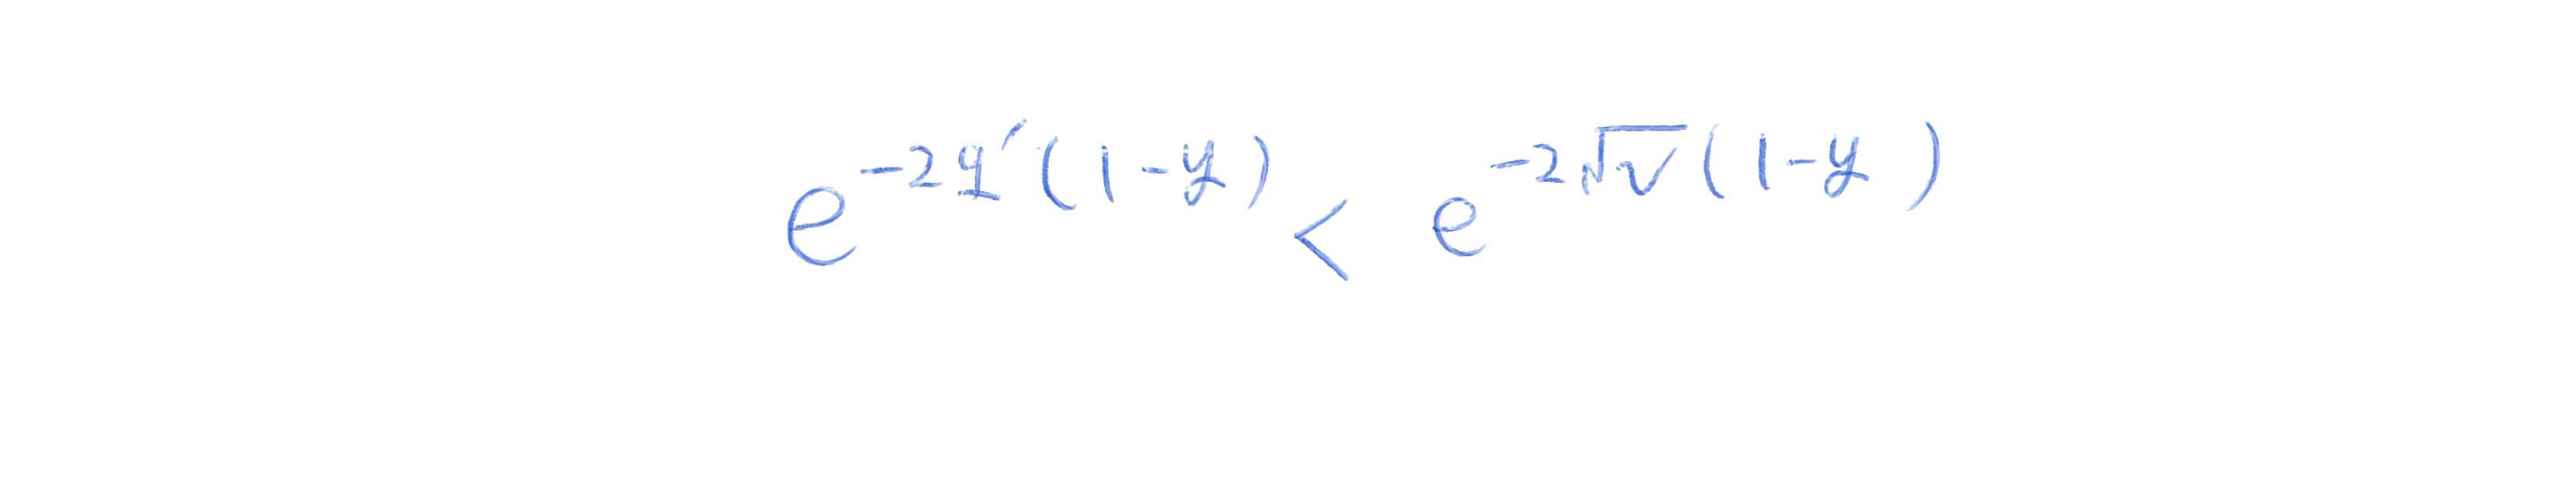 e^{-2q'(1-y)} < e^{-2\sqrt{v}(1-y)}